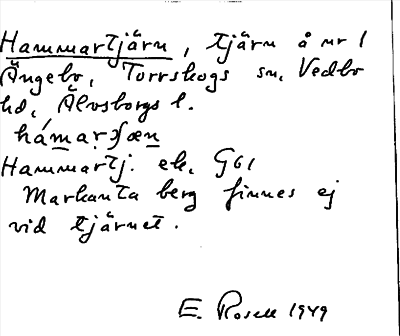 Hammartjärn, tjärn å nr 1
Ängebo, Torrskogs sn, Vedbo
hd, Älvsborgs l.
Hammartj. ek. G61
Markanta berg finnes ej
vid tjärnet.
E. Rosell 1949